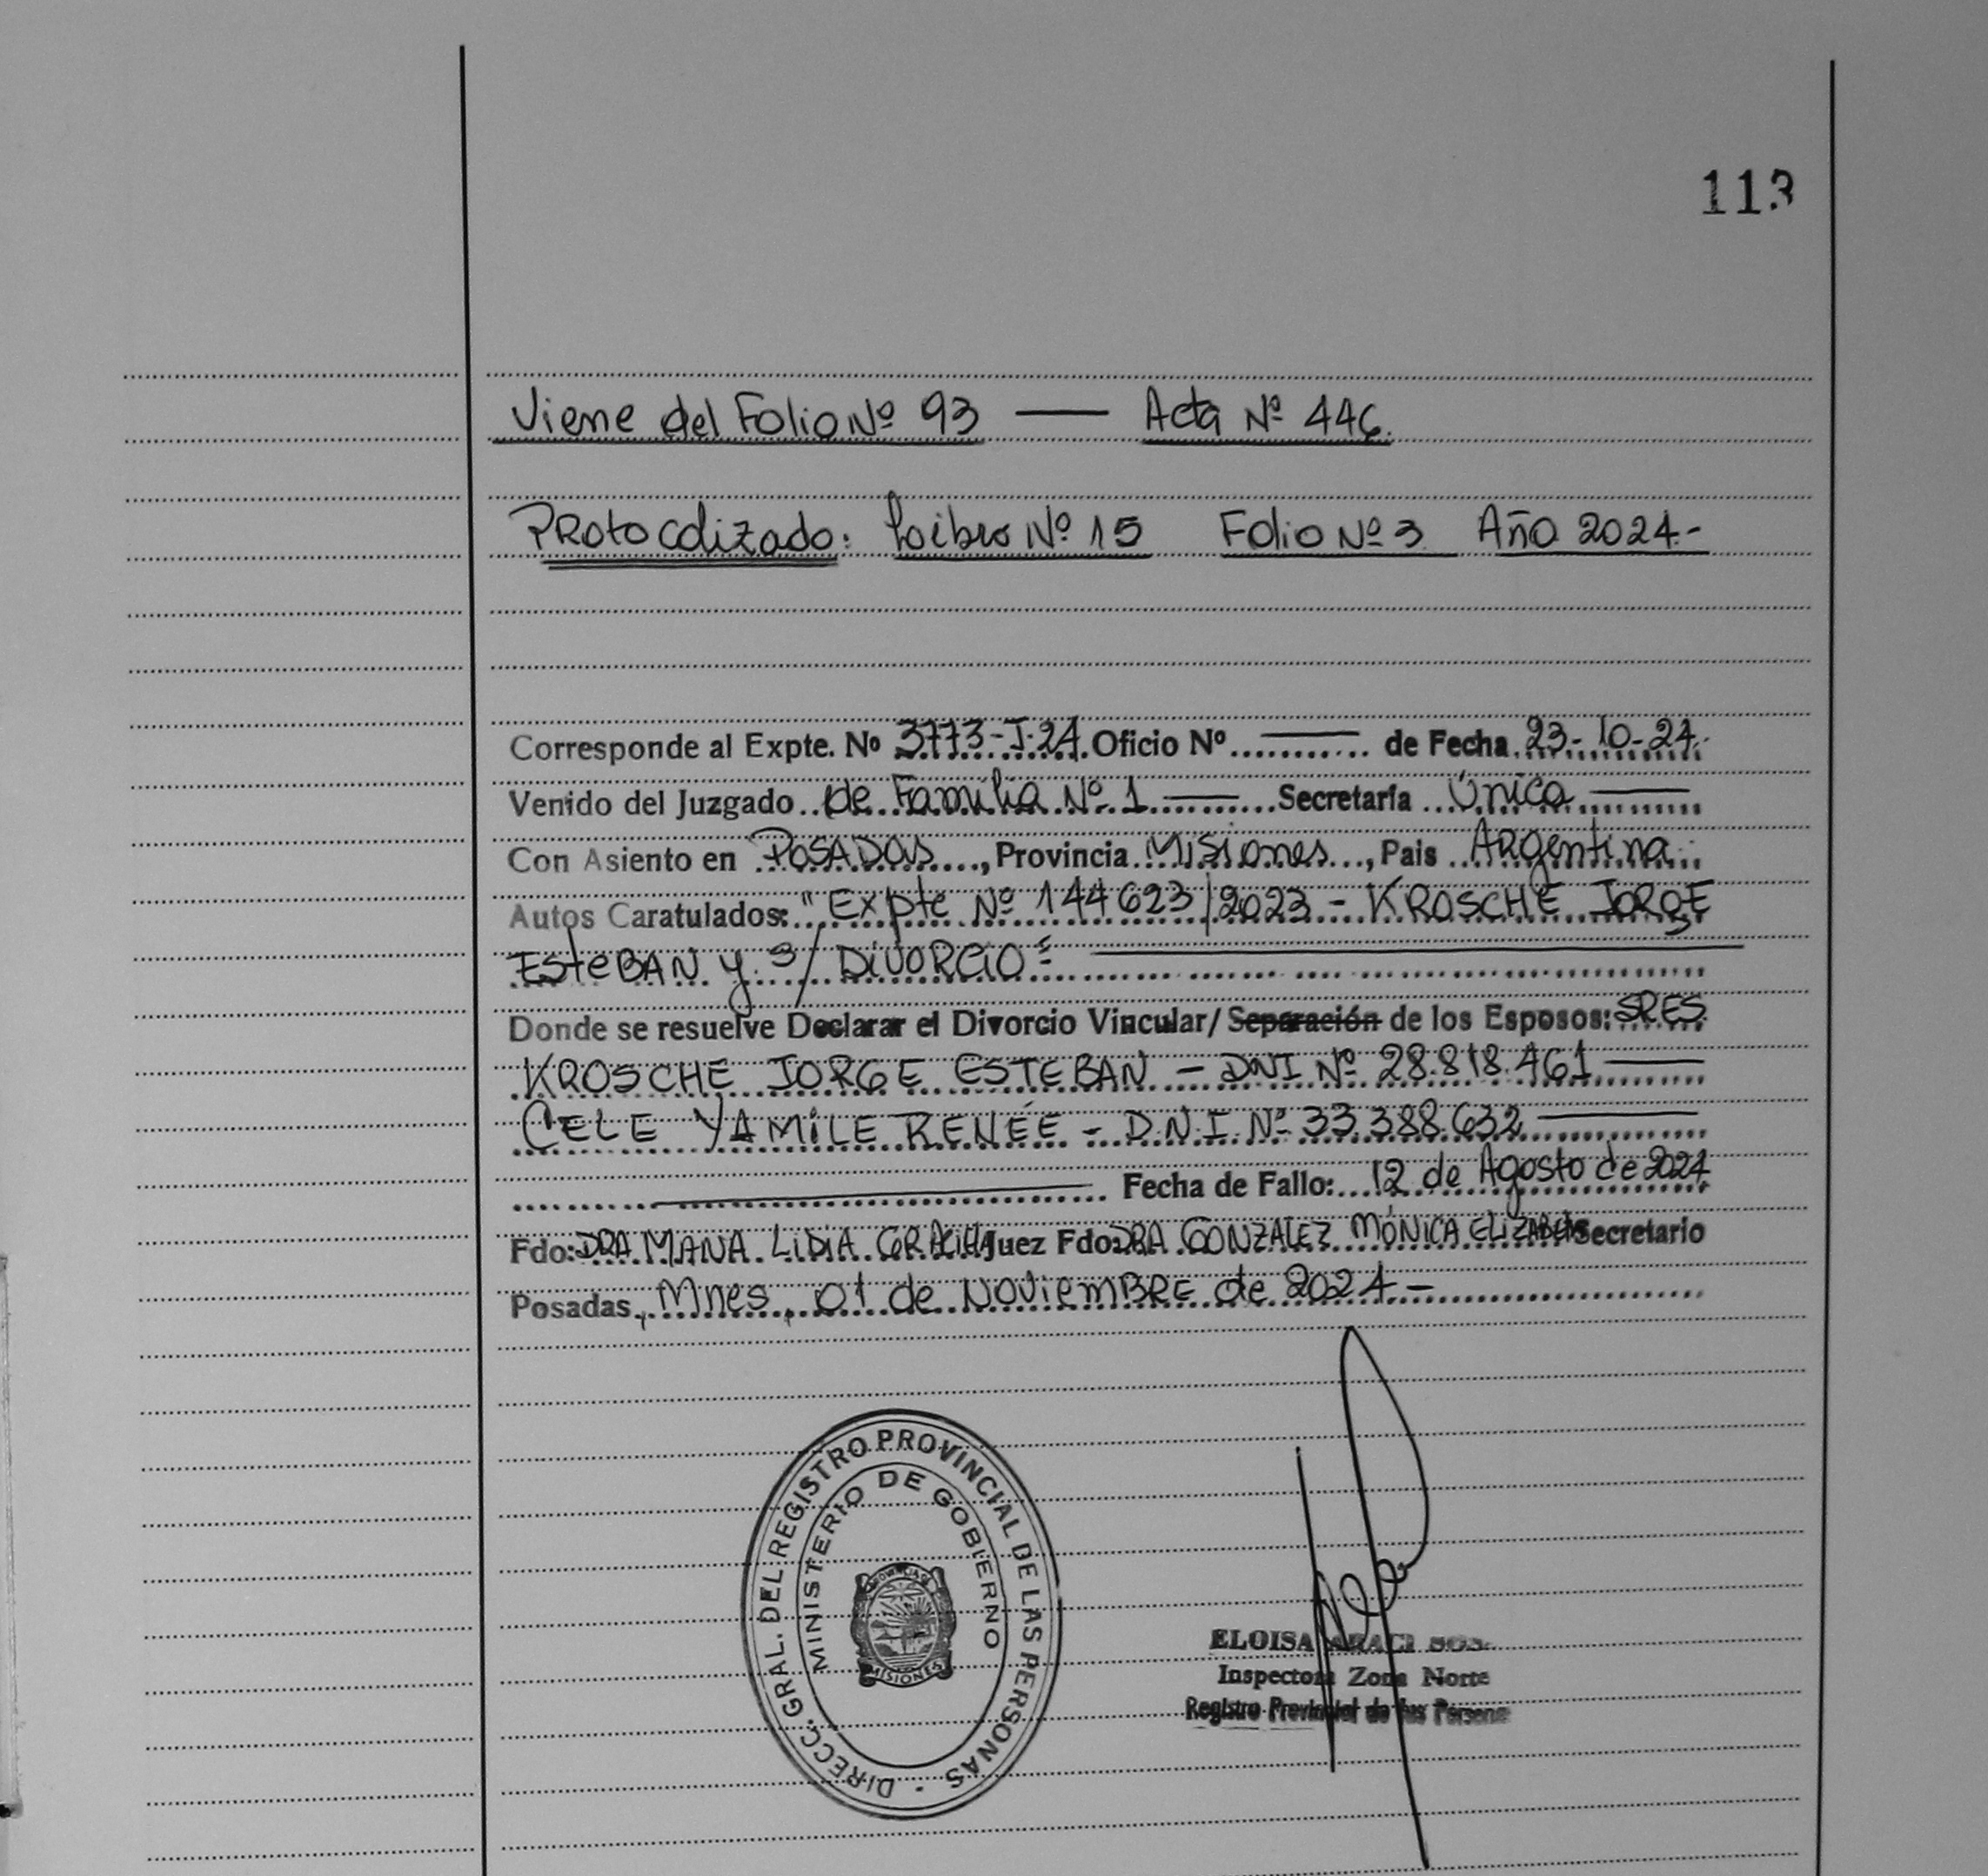 113
Viene del Folio Nº 93 — Acta Nº 446.
Protocolizado: Libro Nº 15 Folio Nº 3 Año 2024.-
Corresponde al Expte. Nº 3773-J-24. Oficio Nº — de Fecha 23-10-24.
Venido del Juzgado de Familia Nº 1 — Secretaría Única —
Con Asiento en Posadas, Provincia Misiones, Pais Argentina
Autos Caratulados: "Expte Nº 144623/2023 - KROSCHE JORGE
ESTEBAN y s/ DIVORCIO"
Donde se resuelve Declarar el Divorcio Vincular/Separación de los Esposos: SRES
KROSCHE JORGE ESTEBAN - DNI Nº 28.818.461 —
CELE YAMILE RENÉE - D.N.I. Nº 33.388.632 —
Fecha de Fallo: 12 de Agosto de 2024
Fdo: DRA. LIDIA Juez Fdo: DRA GONZALEZ MÓNICA ELIZABETH Secretario
Posadas, Mnes, 01 de NOVIEMBRE de 2024 -
DIRECC. GRAL. DEL REGISTRO PROVINCIAL DE LAS PERSONAS -
MINISTERIO DE GOBIERNO
MISIONES
ELOISA ARACI
Inspectora Zona Norte
Registro Provincial de las Persona